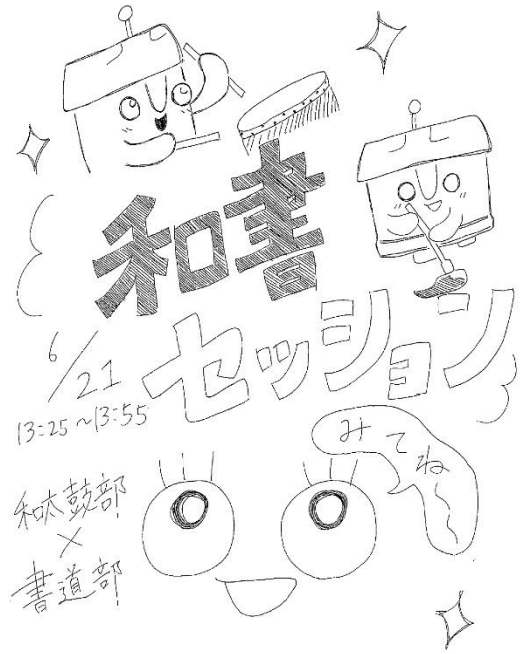 和書
セッション
6/21
13:25~13:55
みてね〜
和太鼓部
×
書道部